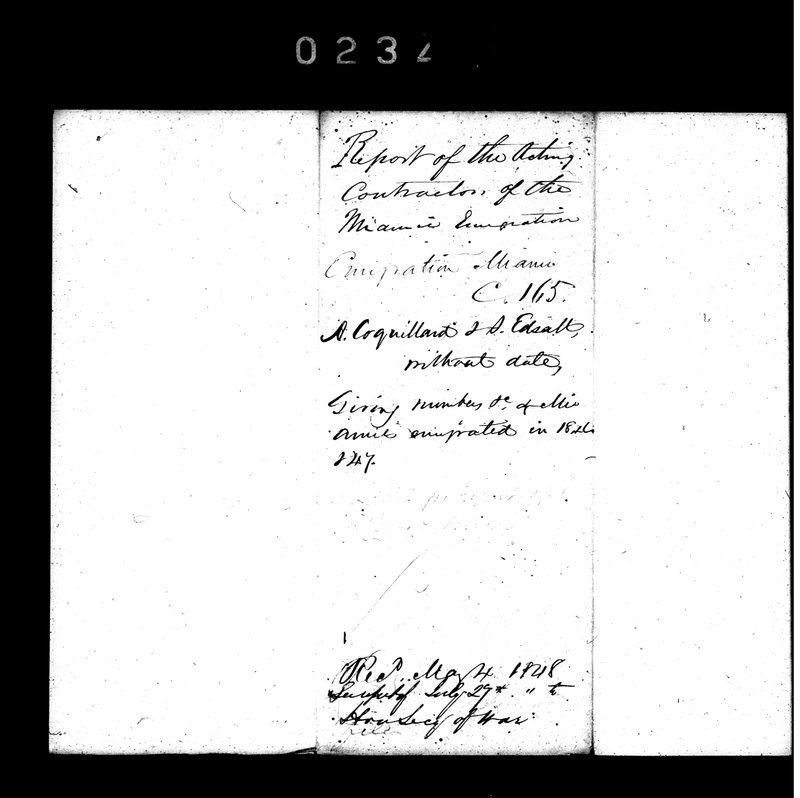 0234
Report of the Acting
Contractors of the
Miamie Emigration
Emigration Miami
C. 165.
A. Coquillard & S. Edsall,
without date,
Giving number &c. of Mi
amies emigrated in 1846
& 47.
Rec'd. May 4 1848
July 27th " to
Hon Secy of War
file